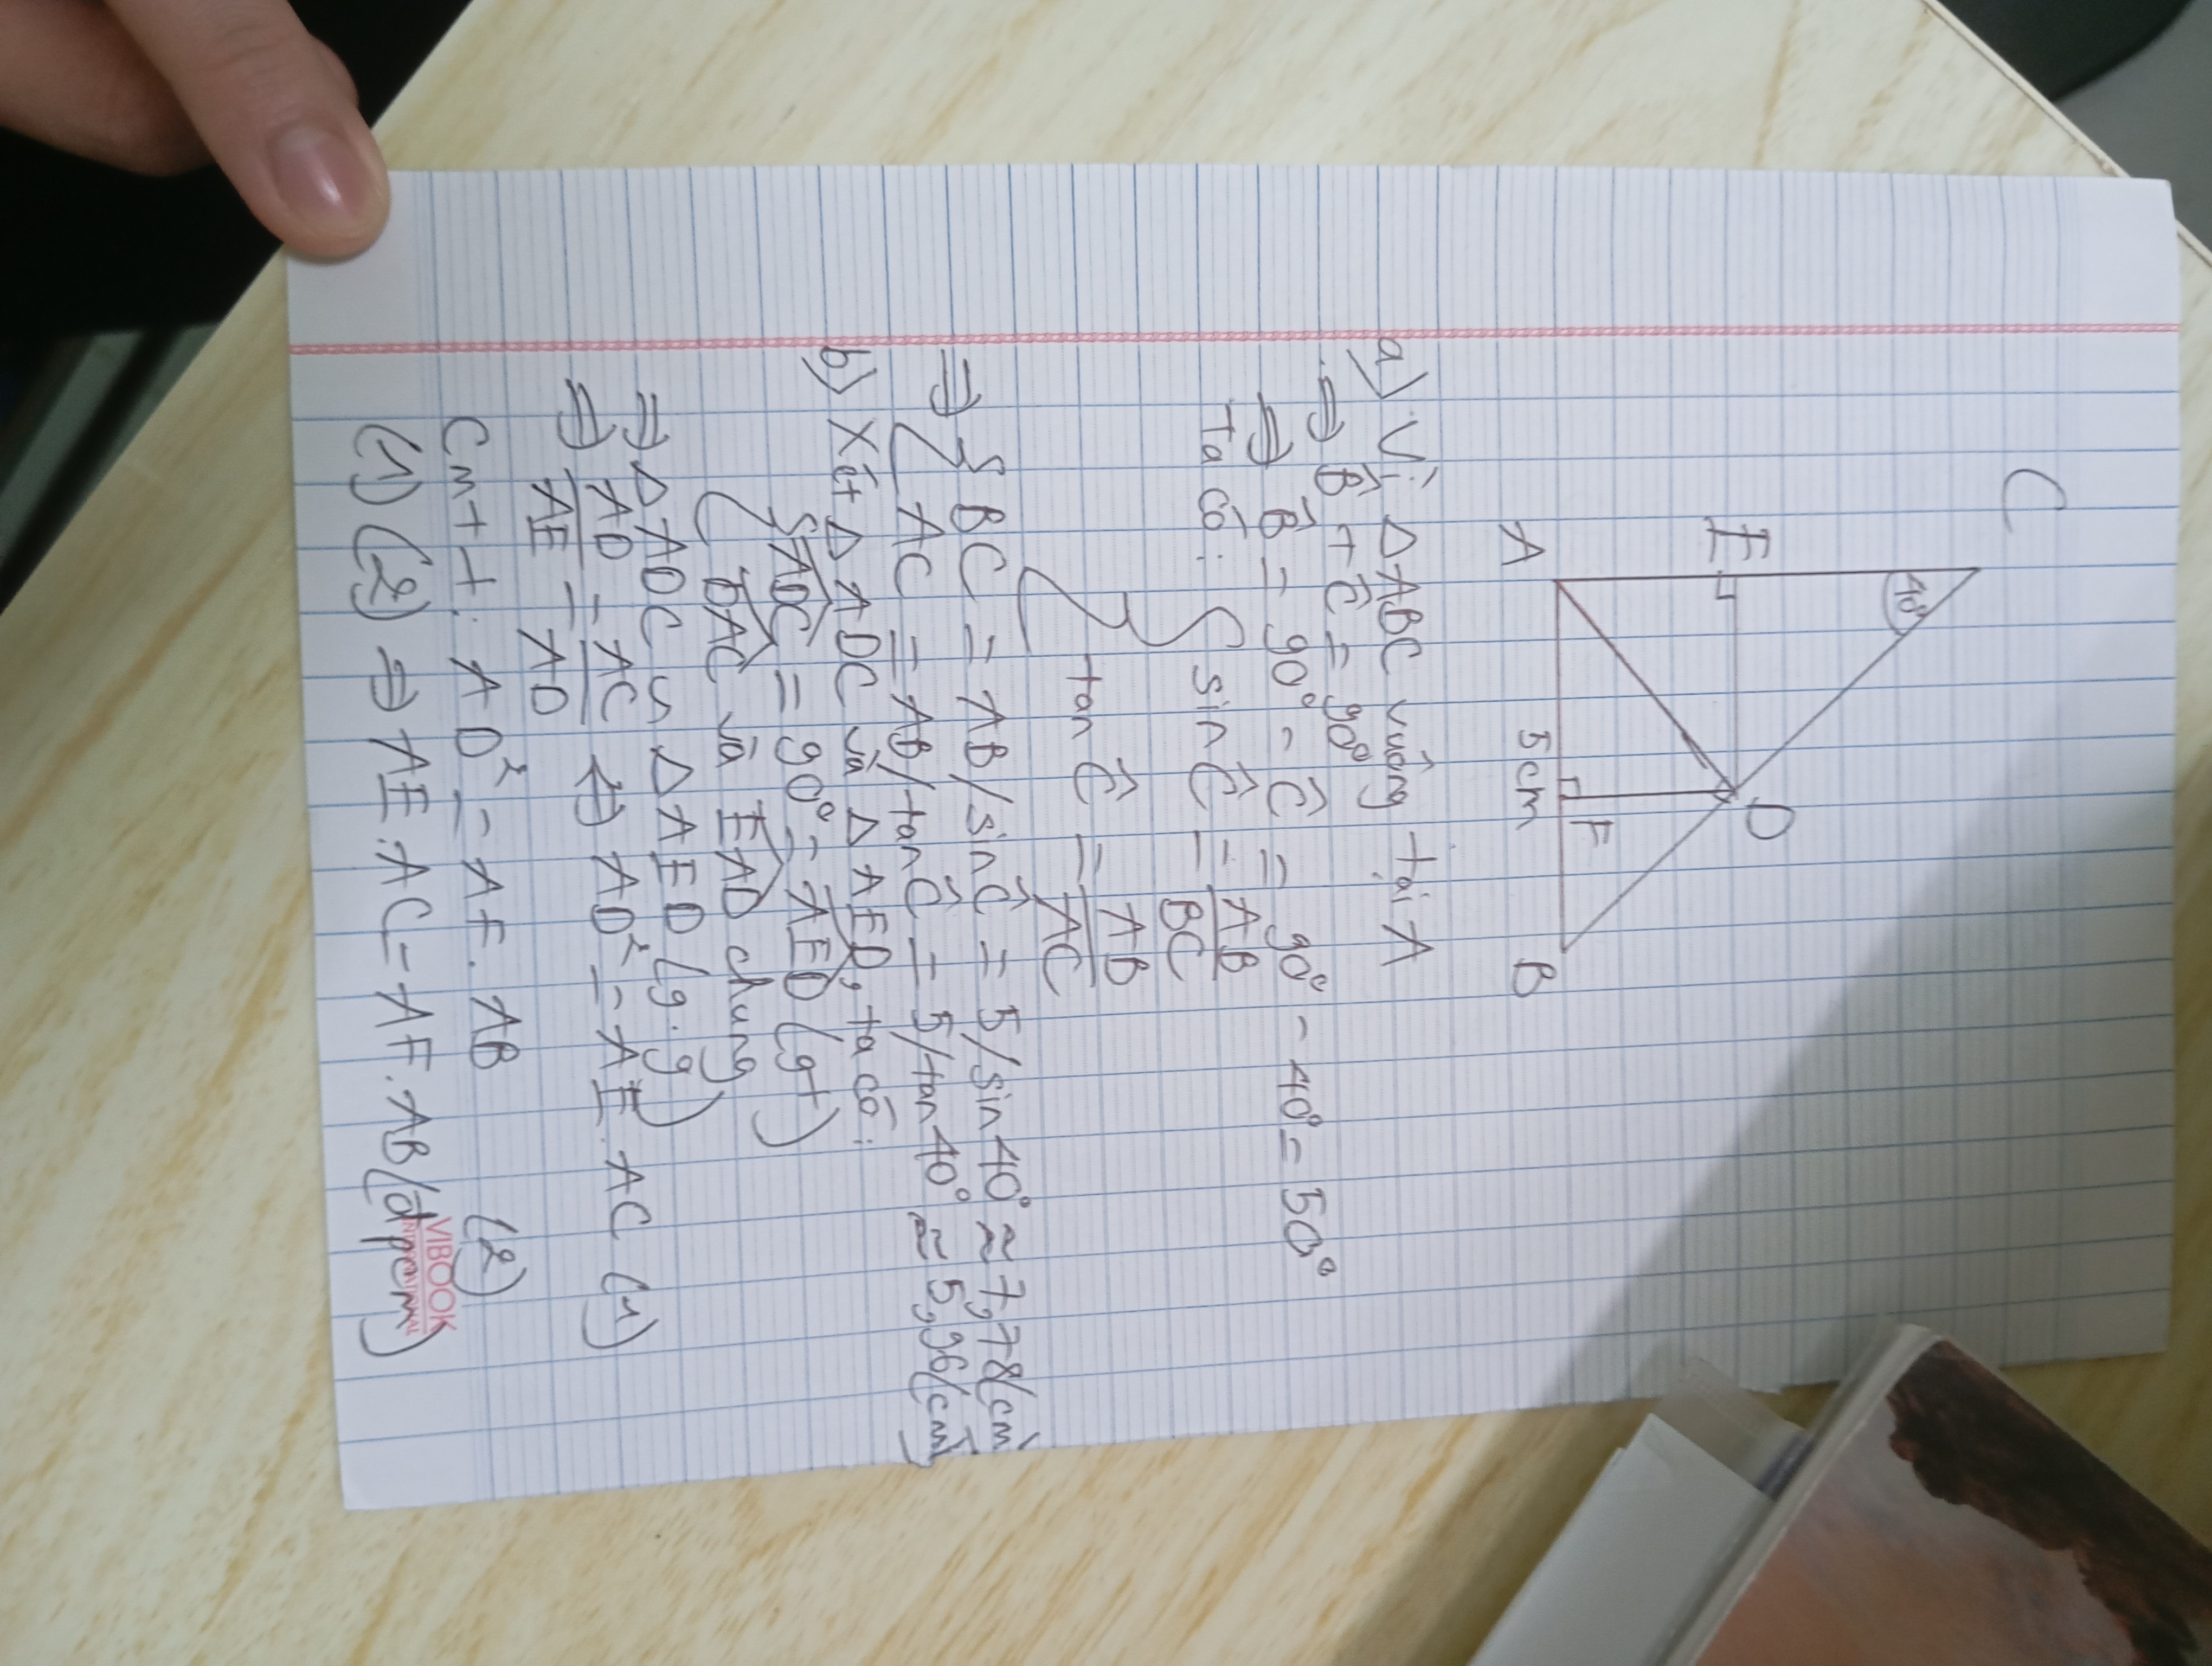 C
40°
E
D
F
A
5cm
B
a) Vì ΔABC vuông tại A
⇒ B̂ + Ĉ = 90°
⇒ B̂ = 90° - Ĉ = 90° - 40° = 50°
Ta có: { sin Ĉ = AB/BC
tan Ĉ = AB/AC
⇒ { BC = AB/sin Ĉ = 5/sin 40° ≈ 7,78(cm)
AC = AB/tan Ĉ = 5/tan 40° ≈ 5,96(cm)
b) Xét ΔADC và ΔAED, ta có:
{ ADC = 90° = AED (gt)
DAC và EAD chung
⇒ ΔADC ∽ ΔAED (g.g)
⇒ AD/AE = AC/AD ⇒ AD² = AE.AC (1)
Cmtt: AD² = AF.AB (2)
(1)(2) ⇒ AE.AC = AF.AB (đpcm)
VIBOOK